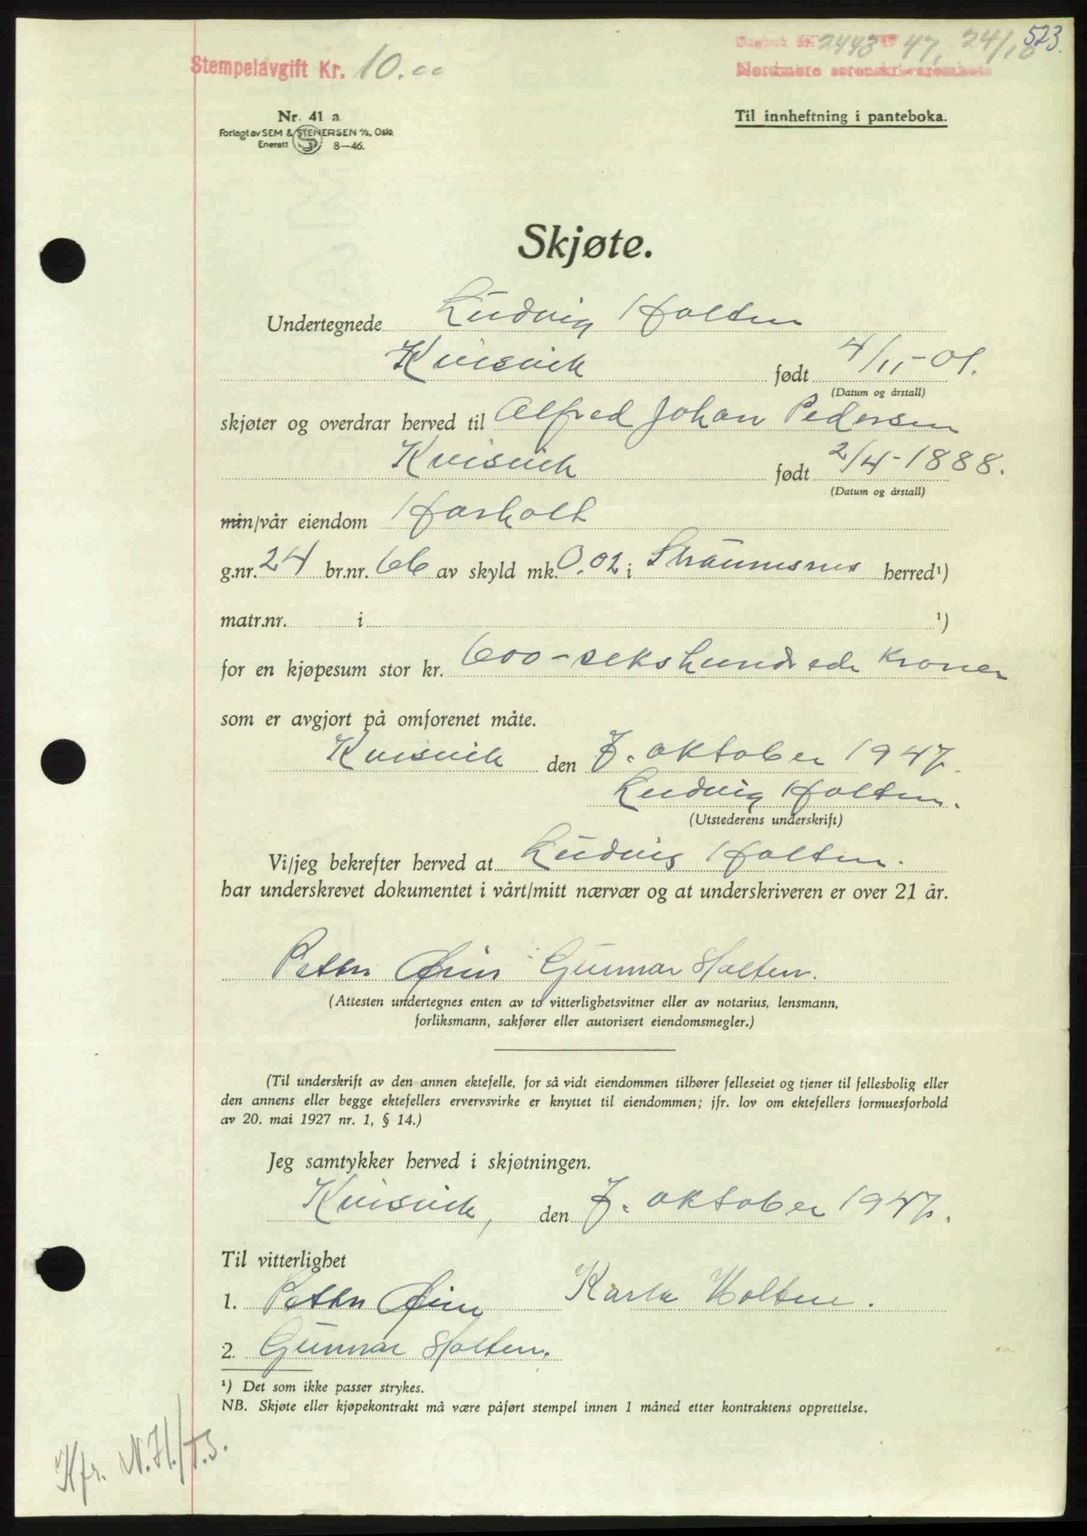 523.
Dagbok nr. 2443 1947, 24/10
Stempelavgift Kr. 10.00
Nordmøre sorenskriverembete
Nr. 41 a
Forlagt av SEM & STENERSEN A/S, Oslo
Enerett 8—46.
Til innheftning i panteboka.
Skjøte.
Undertegnede Ludvig Holten
Kvisvik født 4/11-01.
(Datum og årstall)
skjøter og overdrar herved til Alfred Johan Pedersen
Kvisvik født 2/4-1888.
(Datum og årstall)
min/vår eiendom Harholt
g.nr. 24 br.nr. 66 av skyld mk. 0.02 i Straumsnes herred¹)
matr.nr. i ¹)
for en kjøpesum stor kr. 600 - sekshundrede kroner
som er avgjort på omforenet måte.
Kvisvik den 7. oktober 1947.
Ludvig Holten.
(Utstederens underskrift)
Vi/jeg bekrefter herved at Ludvig Holten.
har underskrevet dokumentet i vårt/mitt nærvær og at underskriveren er over 21 år.
Petter Øien Gunnar Holten.
(Attesten undertegnes enten av to vitterlighetsvitner eller av notarius, lensmann,
forliksmann, sakfører eller autorisert eiendomsmegler.)
(Til underskrift av den annen ektefelle, for så vidt eiendommen tilhører felleseiet og tjener til fellesbolig eller
den annens eller begge ektefellers ervervsvirke er knyttet til eiendommen; jfr. lov om ektefellers formuesforhold
av 20. mai 1927 nr. 1, § 14.)
Jeg samtykker herved i skjøtningen.
Kvisvik, den 7. oktober 1947.
Til vitterlighet
1. Petter Øien Karla Holten.
2. Gunnar Holten.
¹) Det som ikke passer strykes.
NB. Skjøte eller kjøpekontrakt må være påført stempel innen 1 måned etter kontraktens opprettelse.
Kfr. N.H./T.S.